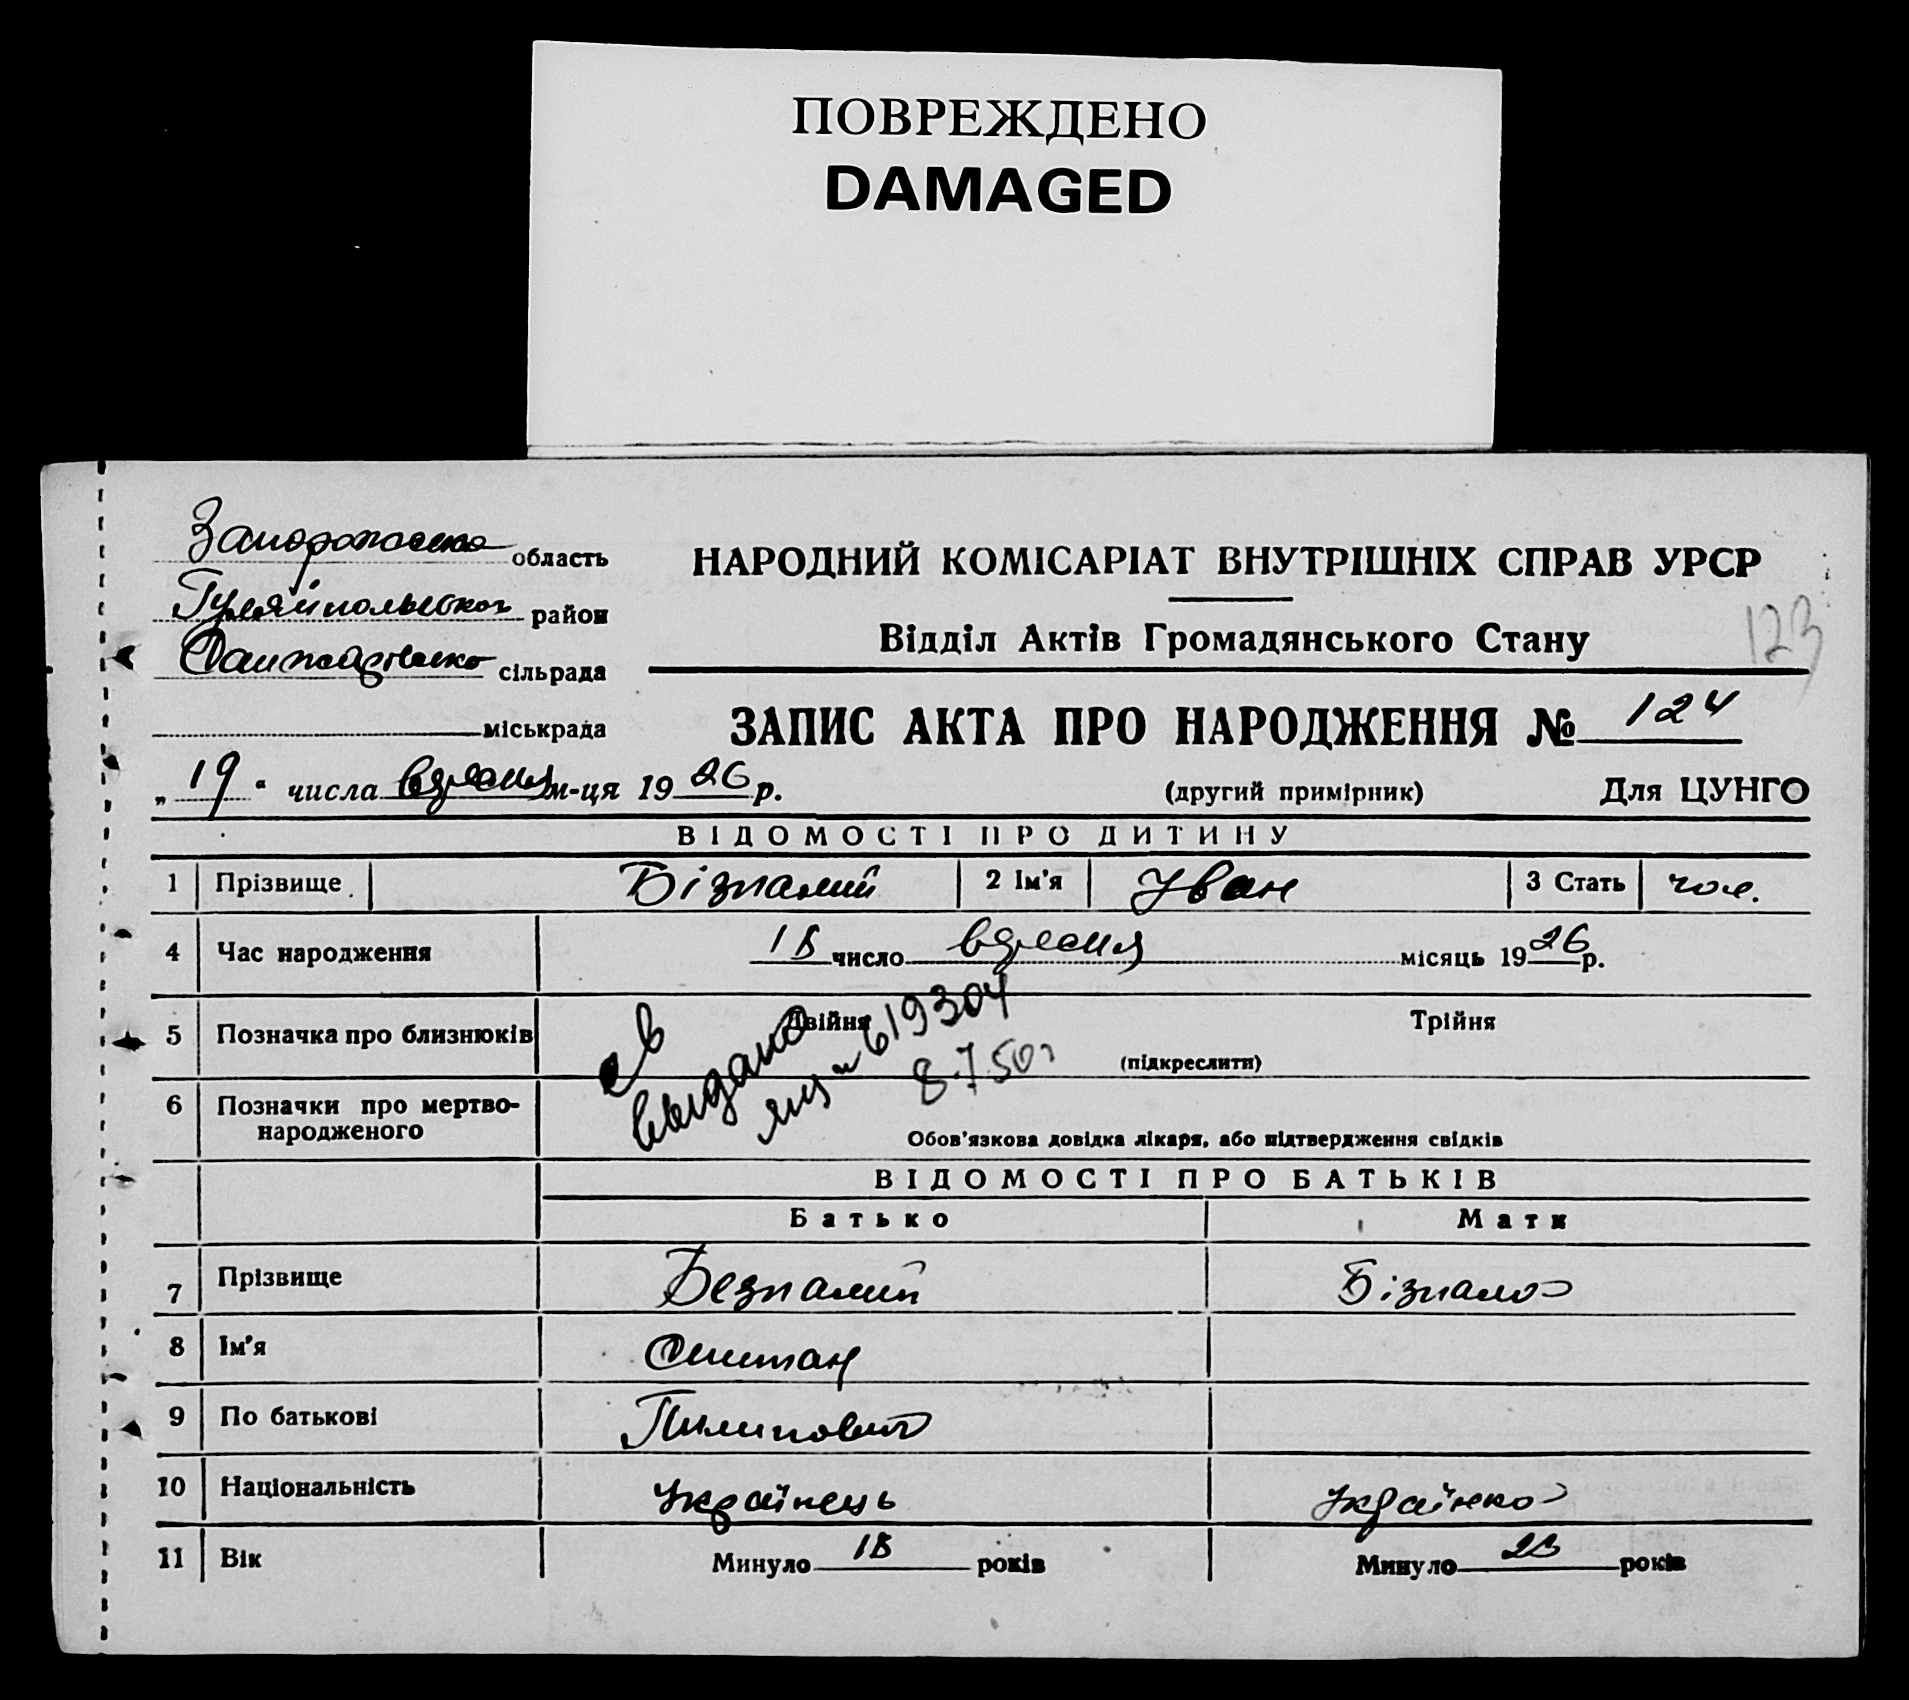 ПОВРЕЖДЕНО
DAMAGED
область
район
сільрада
міськрада
НАРОДНИЙ КОМІСАРІАТ ВНУТРІШНІХ СПРАВ УРСР
Відділ Актів Громадянського Стану
123
ЗАПИС АКТА ПРО НАРОДЖЕННЯ № 124
„ 19 “ числа вересня м-ця 1926 р.
(другий примірник) Для ЦУНГО
ВІДОМОСТІ ПРО ДИТИНУ
1 Прізвище Бізпалий 2 Ім'я Іван 3 Стать чол.
4 Час народження 18 число вересня місяць 1926 р.
5 Позначка про близнюків Двійня Трійня
(підкреслити)
выдано
619304
8.7.50г
6 Позначки про мертво-
народженого
Обов'язкова довідка лікаря, або підтвердження свідків
ВІДОМОСТІ ПРО БАТЬКІВ
Батько Мати
7 Прізвище Безпалий Бізпала
8 Ім'я
9 По батькові Пилипович
10 Національність Українець Українка
11 Вік Минуло 18 років Минуло років